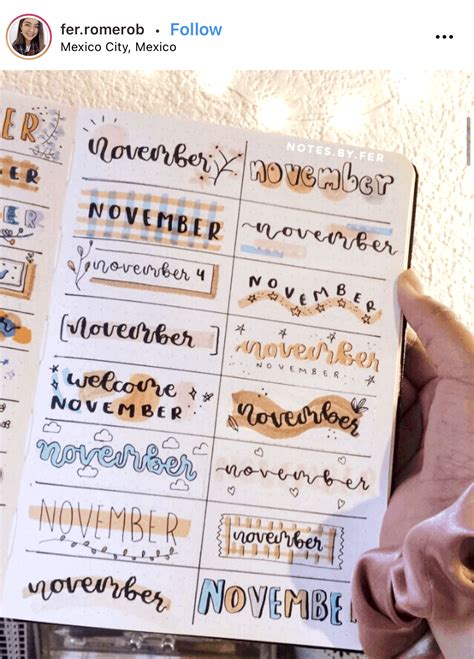 fer.romerob • Follow
Mexico City, Mexico
NOTES.BY.FER
ER
november
november
ER
NOVEMBER
november
ER
november 4
NOVEMBER
[november]
november
NOVEMBER
welcome
NOVEMBER
november
november
november
NOVEMBER
november
november
NOVEMBER